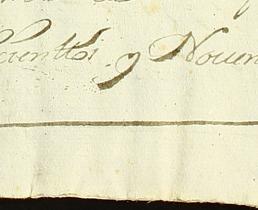 Cientto's y Noven